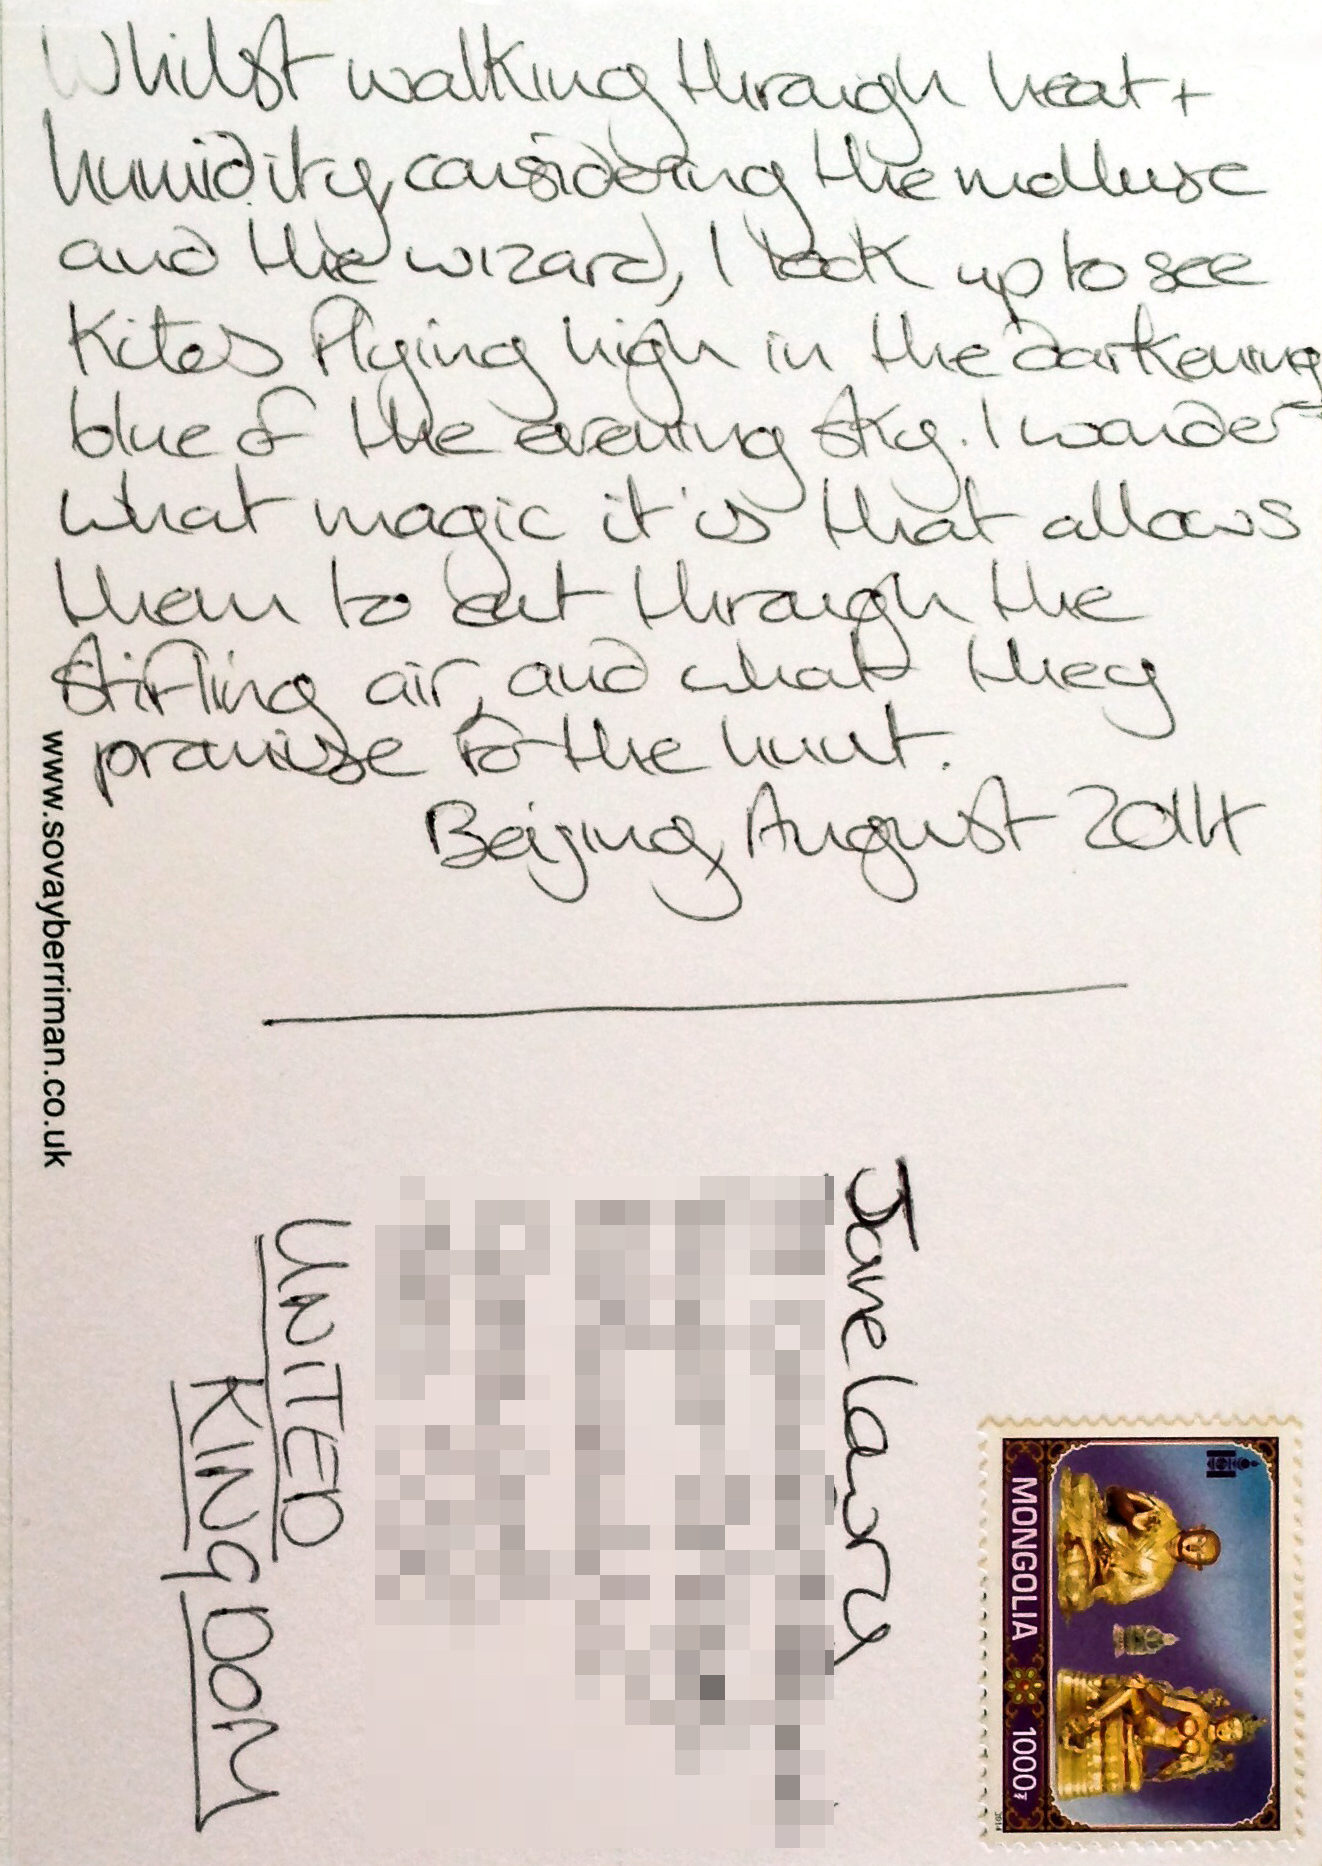 Whilst walking through heat +
humidity, considering the mollusc
and the wizard, I look up to see
kites flying high in the darkening
blue of the evening sky. I wonder
what magic it is that allows
them to cut through the
stifling air, and what they
promise for the hunt.
Beijing, August 2014
www.sovayberriman.co.uk
Jane Lawry
UNITED
KINGDOM
MONGOLIA 1000₮
2014